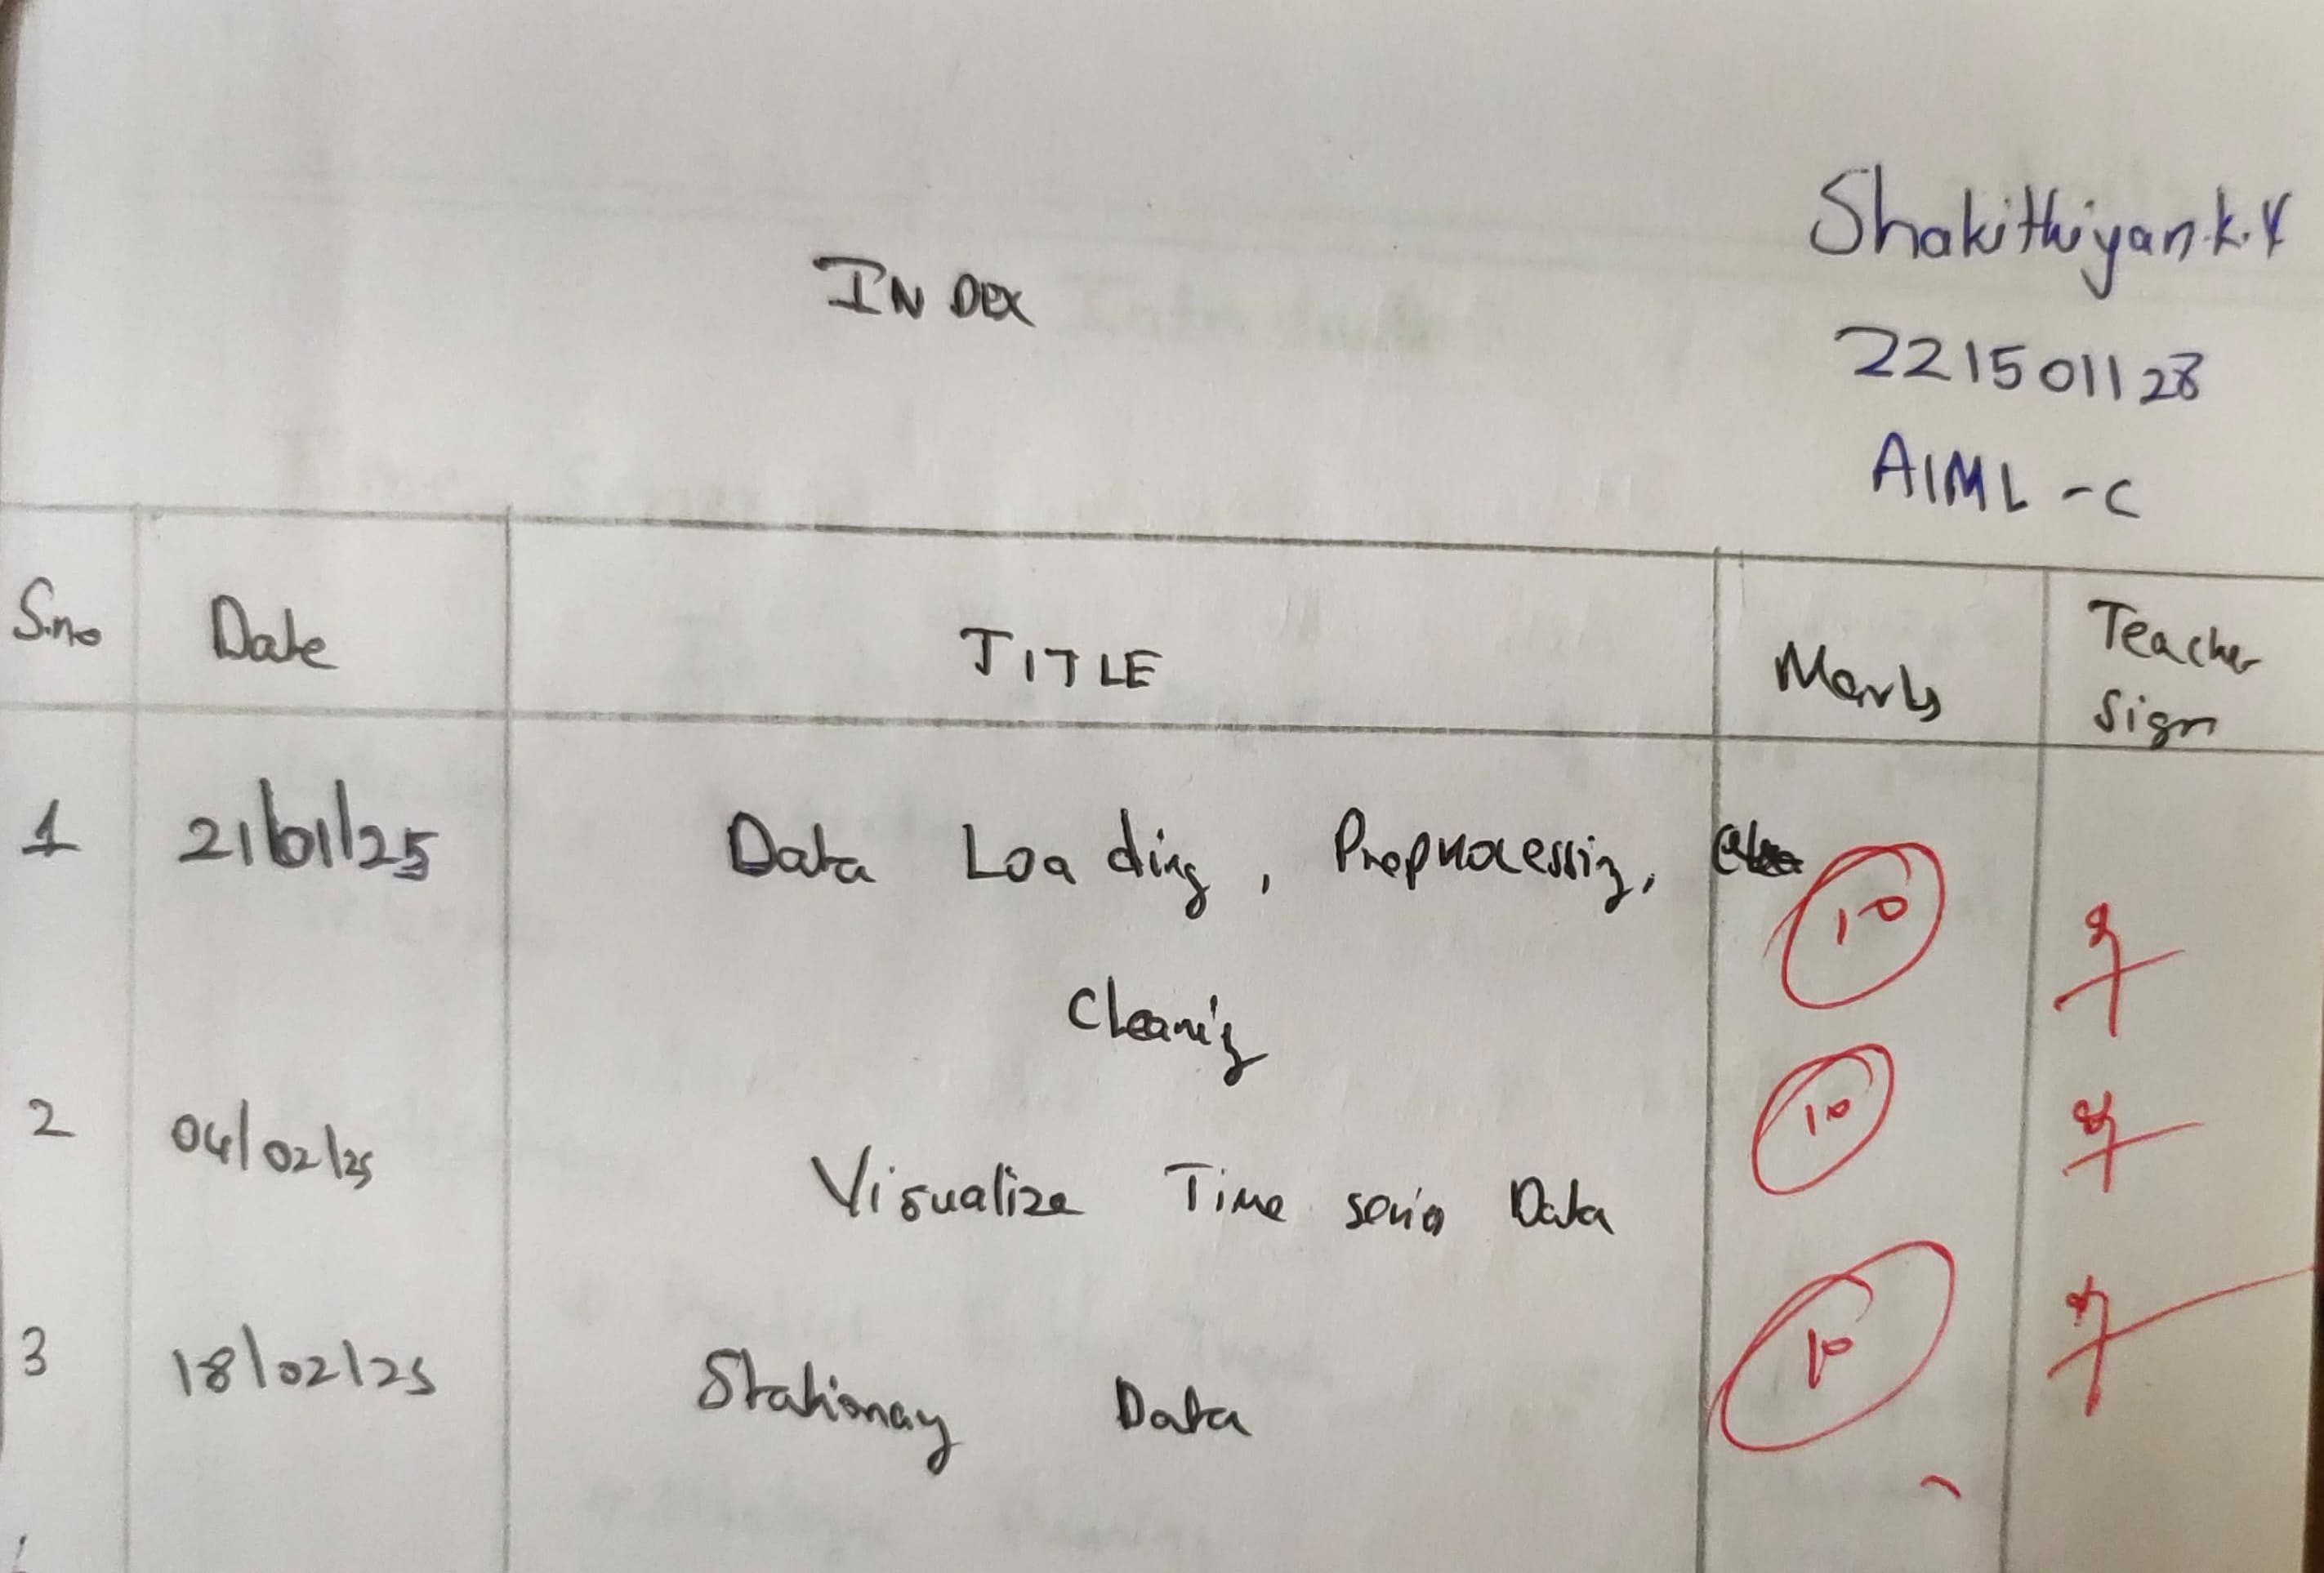 Shakithiyan.k.Y
INDEX
221501128
AIML -C
S.no Date TITLE Marks Teacher
Sign
1 21/01/25 Data Loading, Preprocessing,
Cleaning 10
2 04/02/25 Visualize Time series Data 10
3 18/02/25 Stationary Data 10